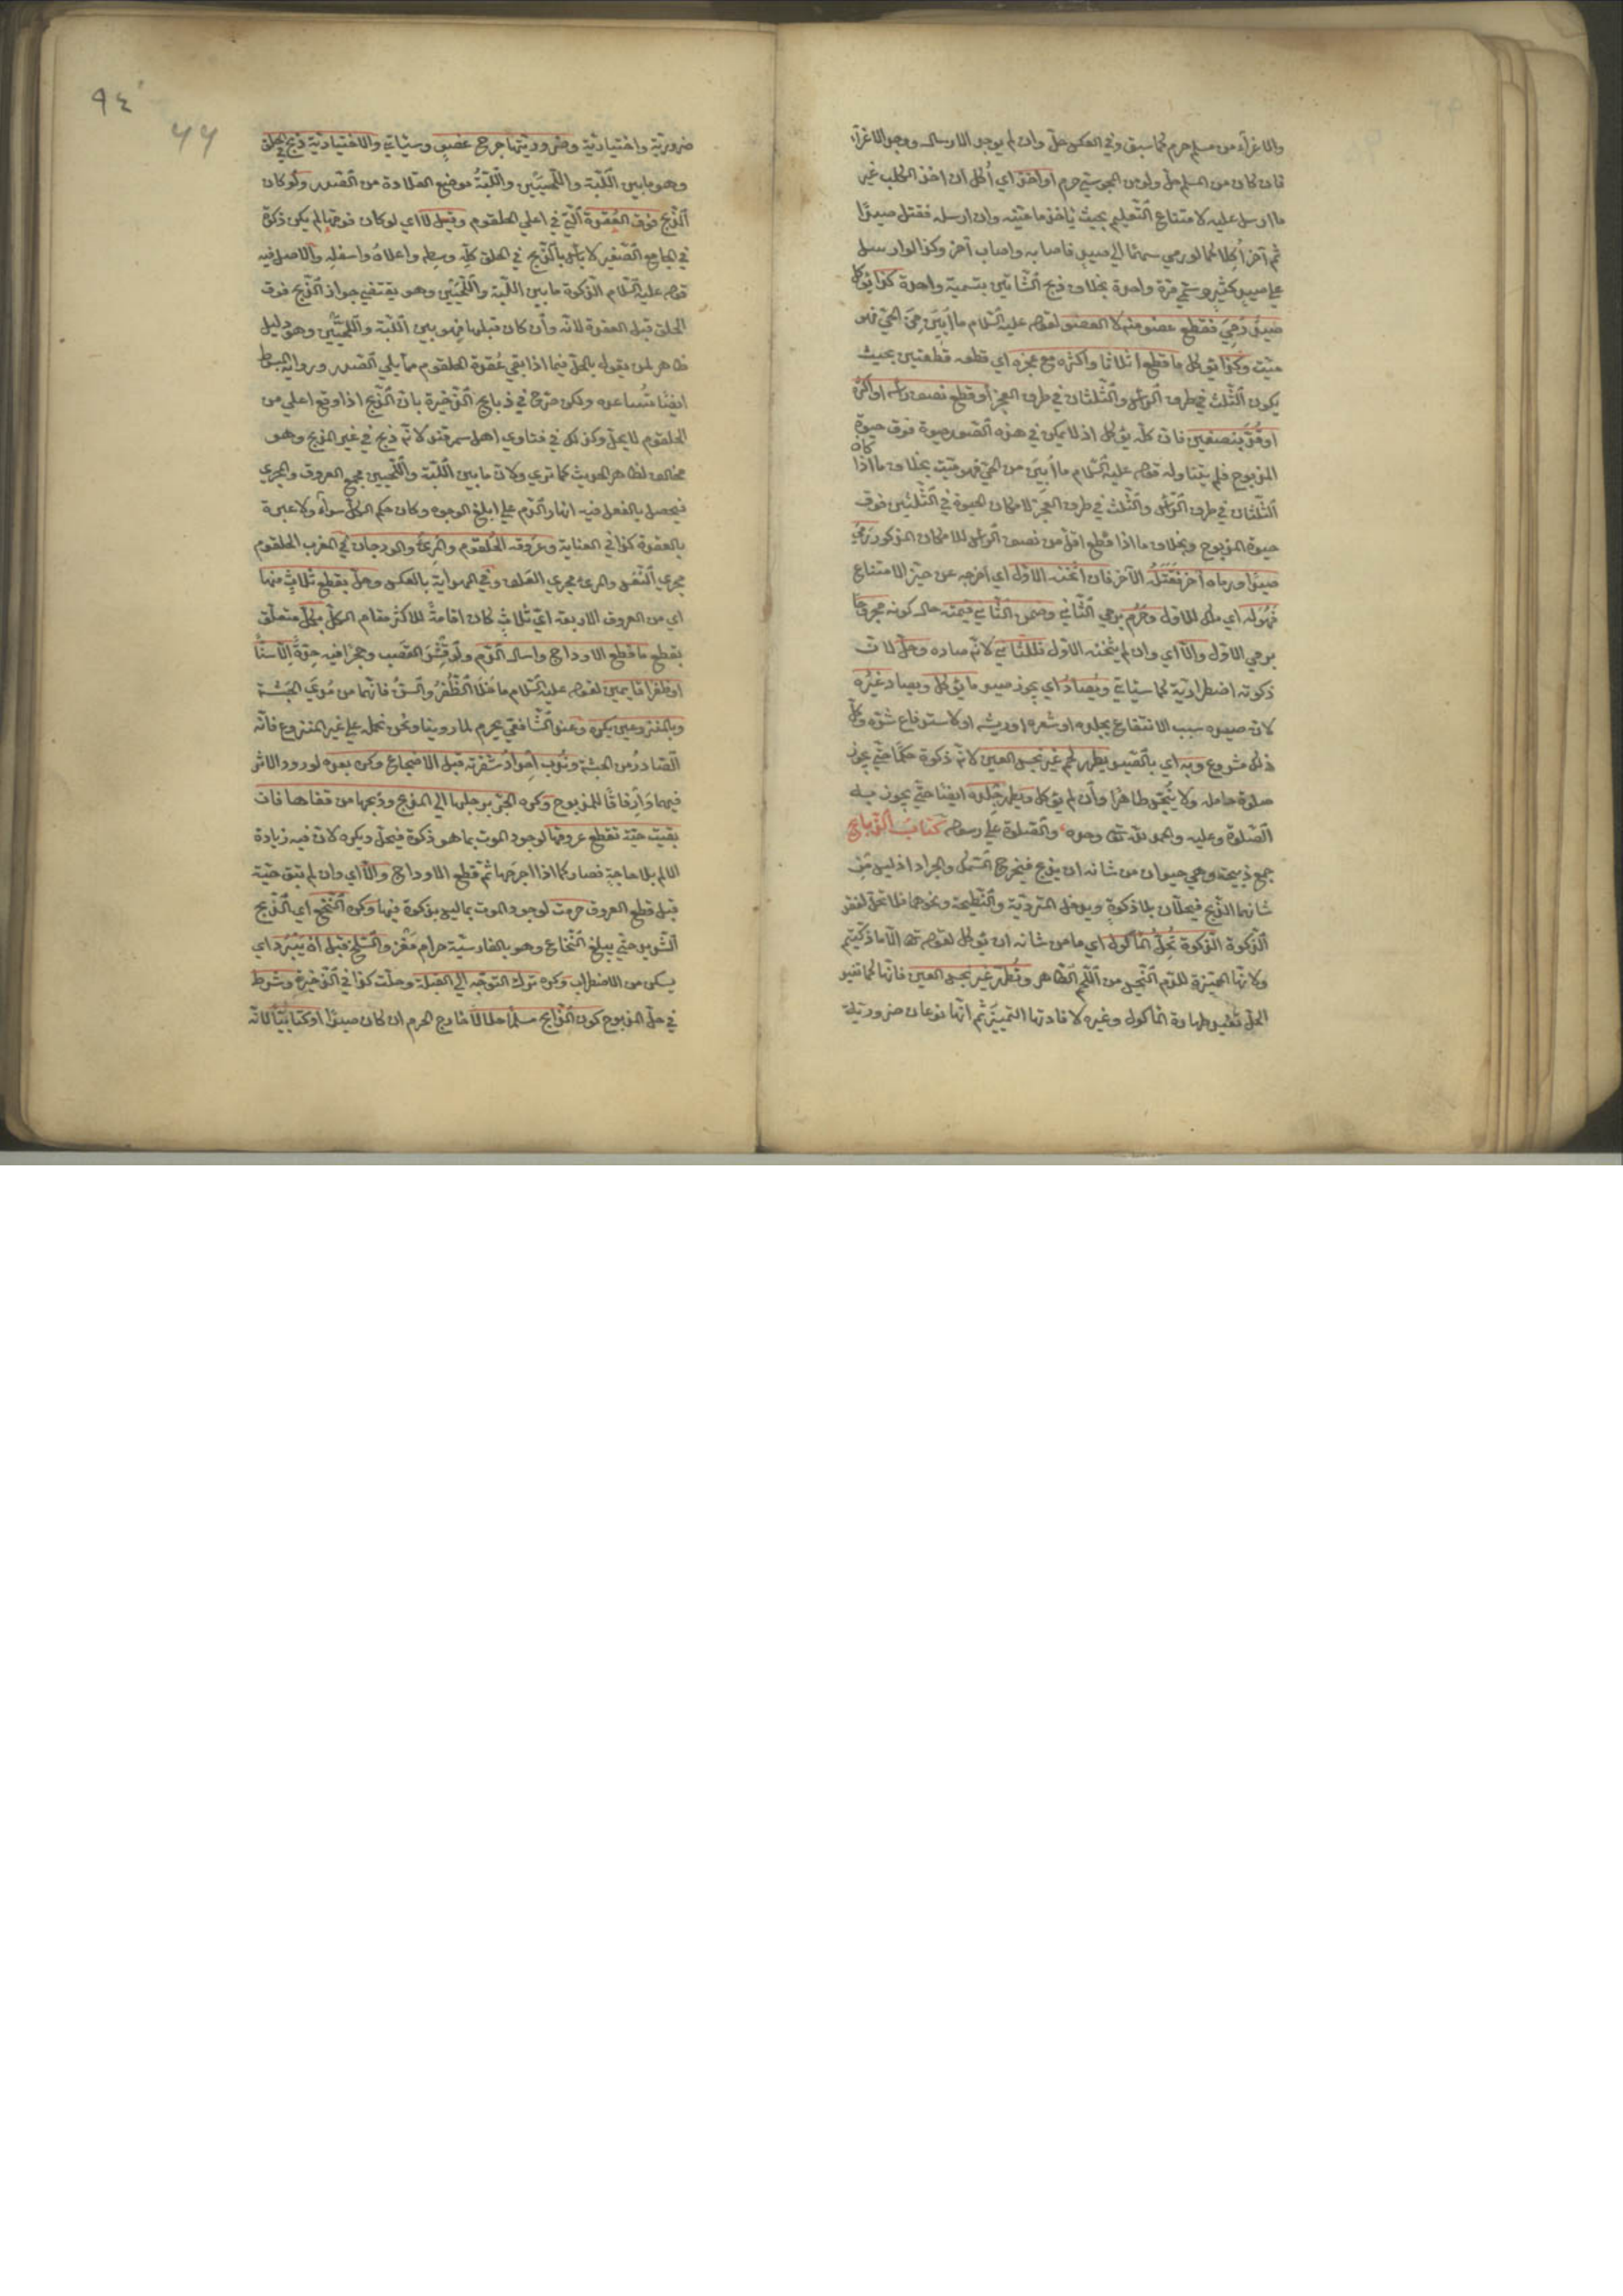 والاغراء من مسلم حرم كما سبق وفي العكس حل وان لم يوجد الارسال ووجد الاغراء
فان كان من المسلم حل ولو من المجوسي حرم او اخذ اي أكل ان اخذ الكلب غير
ما ارسل عليه لامتناع التعليم بحيث ياخذ ما عينه وان ارسله فقتل صيدًا
ثم آخر أُكِلا كما لو رمي سهمًا الي صيدٍ فاصابه واصاب آخر وكذا لو ارسل
علي صيدٍ كثيرٍ وسمّي مرّة واحدة بخلاف ذبح الشّاتين بتسمية واحدة كذا يؤكل
صيدٌ رُمِيَ فقطع عضو منه لا العضو لقوله عليه السّلام ما اُبِينَ مِن الحيّ فهو
ميّت وكذا يؤكل ما قطع اثلاثا واكثره مع عجزه اي قطعه قطعتين بحيث
يكون الثّلث في طرف الرّأس والثّلثان في طرف العجز أو قطع نصف رأسه او اكثره
او قُدَّ بنصفين فان كلّه يؤكل اذ لا يمكن في هذه الصّور حيوة فوق حيوة
المذبوح فلم يتناوله قوله عليه السّلام ما اُبينَ من الحيّ فهو ميّت بخلاف ما اذا كان
الثّلثان في طرف الرّأس والثّلث في طرف العَجز لامكان الحيوة في الثّلثين فوق
حيوة المذبوح وبخلاف ما اذا قطع اقلّ من نصف الرأس للامكان المذكور رَمَي
صيدًا ورماه آخر فَقَتَلَهُ الآخر فان أثخنه الاوّل اي اخرجه عن حيّز الامتناع
فَهُوَ له اي ملك للاوّل وحَرُمَ برمي الثّاني وضمن الثّاني قيمته حال كونه مجروحًا
برمي الاوّل والّا اي وان لم يثخنه الاوّل فللثّاني لانّه صاده وحلّ لانّ
ذكوته اضطراريّة كما سيأتي ويُصادُ اي يجوز صيد ما يؤكل ويصاد غيرُه
لانّ صيده سبب الانتفاع بجلده او شعره او ريشه او لاستدفاع شرّه وكلّ
ذلك مشروع وبِه اي بالصّيد يطهر لحم غير نجس العين لانّه ذكوة حكمًا حتّي يجوز
صلوة حامله ولا ينجّس طاهرًا وأن لم يؤكل ويطهر جلده ايضًا حتّي يجوز فيه
الصّلوة وعليه والحمد للّه تعالى وحده والصّلوة عَلي رسوله كتابُ الذّبايح
جمع ذبيحة وهي حيوان من شانه ان يذبح فيخرج السّمك والجراد اذ ليس مِن
شانهما الذّبح فيحلّان بلا ذكوةٍ ويدخل المتردّية والنّطيحة ونحوهما فلا تحلّ لفقد
الذّكوة الذّكوة تُحِلُّ المأكول اي ما من شانه ان يؤكل لقوله تعالى الّا ما ذكّيتم
ولانّها المميّزة للدّم النّجس من اللّحم الطّاهر وتُطهّر غير نجس العين فانّها كما تفيد
الحلّ تفيد طهارة المأكول وغيره لافادتها التّمييز ثم انّها نوعان ضروريّة
٩٤
ضروريّة واختياريّة وضروريتها جرح عضوٍ وسيأتي والاختياريّة ذبحٌ في الحلق
وهو ما بين اللّبّة واللّحيَيْن واللّبّةُ موضع القلادة من الصّدر ولَو كان
الذّبح فوق العُقدة الّتي في اعلي الحلقوم وقيل لا اي لو كان فوقها لم يكن ذكوة
في الجامع الصّغير لا بأس بالذّبح في الحلق كلّه وسطه واعلاهُ واسفله والاصل فيه
قوله عليه السّلام الذّكوة ما بين اللّبّة واللّحيَيْن وهو يقتضي جواز الذّبح فوق
الحلق قبل العقدة لانّه وأن كان قبلها فهو بين اللّبّة واللّحيَيْن وهو دليل
ظاهر لمن يقول بالحلّ فيما اذا بقي عُقدة الحلقوم ممّا يلي الصّدر ورواية المبسوط
ايضًا تُساعده ولكن صرّح في ذبايح الذّخيرة بانّ الذّبح اذا وقع اعلي من
الحلقوم لا يحلّ وكذلك في فتاوي اهل سمرقند لانّه ذبح في غير المذبح وهو
مخالف لظاهر الحديث كما تري ولانّ ما بين اللّبّة واللّحيين مجمع العروق والمجري
فيحصل بالفعل فيه انهار الدّم علي ابلغ الوجوه وكان حكم الكلّ سواءً ولا عبرة
بالعقدة كذا في العناية وعُروقه الحُلقوم والمرِيُّ والودجان في المغرب الحلقوم
مجري النّفس والمرئ مجري العلف وفي الهداية بالعكس وحلّ بقطع ثلاثٍ منها
اي من العروق الاربعة ايّ ثلاثٍ كان اقامةً للاكثر مقام الكلّ بكلّ متعلّق
بقطع ما قطع الاوداج واسال الدّم ولَو قِشْرَ القصب وحجرًا فيه حِدّةٌ اِلّا سنًّا
او ظفرًا قايمين لقوله عليه السّلام ما خلا الظُّفُرُ والسّنُّ فانّهما من مُديَ الحَبَشة
وبالمنزوعين يكره وعند الشّافعي يحرم لما روينا ونحن نحمله علي غير المنزوع فانّه
الصّادرُ من الحبشة ونُدِب اِحدادُ شفرته قبل الاضجاع وكره بعده لورود الاثر
فيهما واِرفاقًا للمذبوح وكره الجرّ برجلها الي المذبح وذبحها من قفاها فان
بقيت حيّة فقطع عروقها لوجود الموت بما هو ذكوة فيحلّ ويكره لانّ فيه زيادة
الالم بلا حاجةٍ فصار كما اذا اجرحها ثمّ قطع الاوداج والّا اي وان لم تبق حيّة
قبل قطع العروق حرمت لوجود الموت بما ليس بذكوة فيها وكره النّخع اي الذّبح
الشّديد حتّي يبلغ النّخاع وهو بالفارسيّة حرام مَغْز والسّلخ قبل اَنْ يَبْرُد اي
يسكن من الاضطراب وكره ترك التوجّه الي القبلة وحلّت كذا في الذّخيرة وشرط
في حلّ المذبوح كون الذّابح مسلمًا حلالًا خارج الحرم ان كان صيدًا أو كتابيًّا لانّه